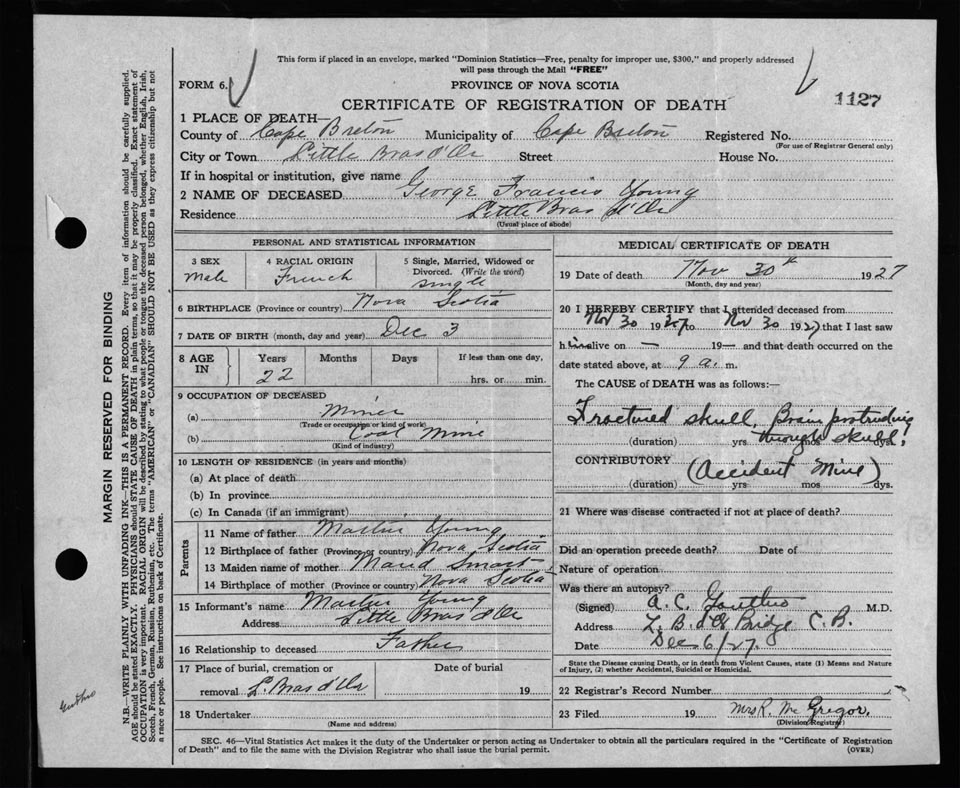 This form if placed in an envelope, marked "Dominion Statistics—Free, penalty for improper use, $300," and properly addressed
will pass through the Mail "FREE"
FORM 6.
PROVINCE OF NOVA SCOTIA
CERTIFICATE OF REGISTRATION OF DEATH
1127
1 PLACE OF DEATH—
County of Cape Breton Municipality of Cape Breton Registered No.
(For use of Registrar General only)
City or Town Little Bras d'Or Street House No.
If in hospital or institution, give name
2 NAME OF DECEASED George Francis Young
Residence Little Bras d'Or
(Usual place of abode)
PERSONAL AND STATISTICAL INFORMATION
3 SEX
Male
4 RACIAL ORIGIN
French
5 Single, Married, Widowed or
Divorced. (Write the word)
Single
6 BIRTHPLACE (Province or country) Nova Scotia
7 DATE OF BIRTH (month, day and year) Dec 3
8 AGE IN
Years Months Days If less than one day,
22 hrs. or min.
9 OCCUPATION OF DECEASED
(a) Miner
(Trade or occupation or kind of work)
(b) Coal Mine
(Kind of industry)
10 LENGTH OF RESIDENCE (in years and months)
(a) At place of death
(b) In province
(c) In Canada (if an immigrant)
Parents
11 Name of father Martin Young
12 Birthplace of father (Province or country) Nova Scotia
13 Maiden name of mother Maud Smart
14 Birthplace of mother (Province or country) Nova Scotia
15 Informant's name Martin Young
Address Little Bras d'Or
16 Relationship to deceased Father
17 Place of burial, cremation or Date of burial
removal L. Bras d'Or 19
18 Undertaker
(Name and address)
MEDICAL CERTIFICATE OF DEATH
19 Date of death Nov 30th 1927
(Month, day and year)
20 I HEREBY CERTIFY that I attended deceased from
Nov 30 1927 to Nov 30 1927 that I last saw
him alive on — 19— and that death occurred on the
date stated above, at 9 a. m.
The CAUSE of DEATH was as follows:—
Fractured skull, Brain protruding
through skull!
(duration) yrs mos dys.
CONTRIBUTORY (Accident Mine)
(duration) yrs mos dys.
21 Where was disease contracted if not at place of death?
Did an operation precede death? Date of
Nature of operation
Was there an autopsy?
(Signed) A. C. M.D.
Address L. B. d'Or Bridge C. B.
Date Dec 6/27.
State the Disease causing Death, or in death from Violent Causes, state (1) Means and Nature
of Injury, (2) whether Accidental, Suicidal or Homicidal.
22 Registrar's Record Number
23 Filed 19 Mrs R. Mc Gregor,
(Division Registrar)
SEC. 46—Vital Statistics Act makes it the duty of the Undertaker or person acting as Undertaker to obtain all the particulars required in the "Certificate of Registration
of Death" and to file the same with the Division Registrar who shall issue the burial permit.
(OVER)
MARGIN RESERVED FOR BINDING
N.B.—WRITE PLAINLY WITH UNFADING INK—THIS IS A PERMANENT RECORD. Every item of information should be carefully supplied.
AGE should be stated EXACTLY. PHYSICIANS should STATE CAUSE OF DEATH in plain terms, so that it may be properly classified. Exact statement of
OCCUPATION is very important. RACIAL ORIGIN will be described by stating to what people or tongue the deceased person belonged, whether English, Irish,
Scotch, French, German, Russian, Ruthenian, etc. The terms "AMERICAN" or "CANADIAN" SHOULD NOT BE USED as they express citizenship but not
a race or people. See instructions on back of Certificate.